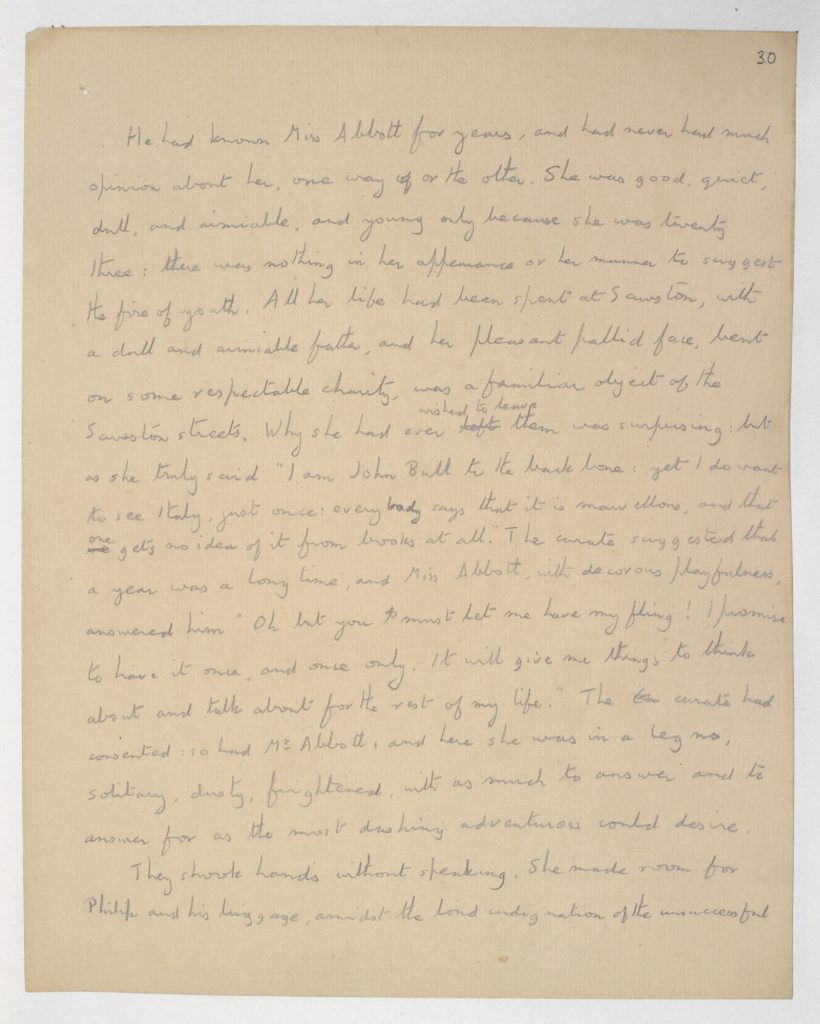 30
He had known Miss Abbott for years, and had never had much
opinion about her, one way of or the other. She was good, quiet,
dull, and aimiable, and young only because she was twenty
three: there was nothing in her appearance or her manner to suggest
the fire of youth. All her life had been spent at Sawston, with
a dull and aimiable father, and her pleasant pallid face, bent
on some respectable charity, was a familiar object of the
wished to leave
Sawston streets. Why she had ever left them was surprising: but
as she truly said "I am John Bull to the back bone: yet I do want
to see Italy, just once: everybody says that it is marvellous, and that
one
gets no idea of it from books at all." The curate suggested that
a year was a long time, and Miss Abbott, with decorous playfulness,
answered him "Oh but you must let me have my fling! I promise
to have it once, and once only. It will give me things to think
about and talk about for the rest of my life." The curate had
consented: so had Mr Abbott: and here she was in a legno,
solitary, dusty, frightened, with as much to answer and to
answer for as the most dashing adventuress could desire.
They shook hands without speaking. She made room for
Philip and his luggage, amidst the loud indignation of the unsuccessful